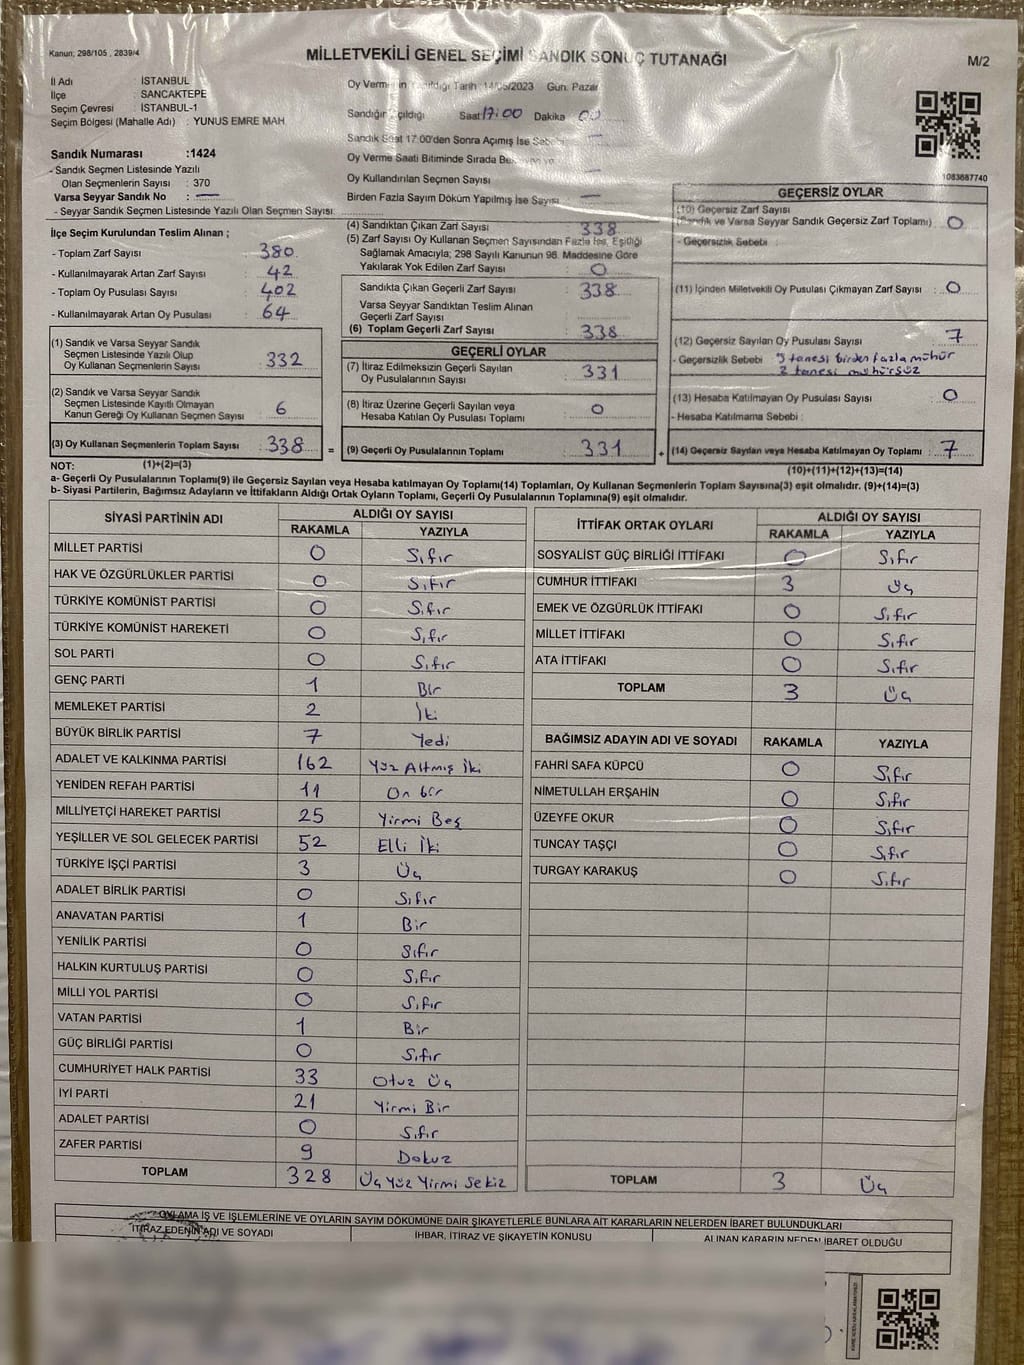 Kanun; 298/105 , 2839/4
MİLLETVEKİLİ GENEL SEÇİMİ SANDIK SONUÇ TUTANAĞI
M/2
İl Adı : İSTANBUL
İlçe : SANCAKTEPE
Seçim Çevresi : İSTANBUL-1
Seçim Bölgesi (Mahalle Adı) : YUNUS EMRE MAH.
Sandık Numarası :1424
- Sandık Seçmen Listesinde Yazılı
Olan Seçmenlerin Sayısı : 370
Varsa Seyyar Sandık No : —
- Seyyar Sandık Seçmen Listesinde Yazılı Olan Seçmen Sayısı:
İlçe Seçim Kurulundan Teslim Alınan ;
- Toplam Zarf Sayısı : 380
- Kullanılmayarak Artan Zarf Sayısı : 42
- Toplam Oy Pusulası Sayısı : 402
- Kullanılmayarak Artan Oy Pusulası : 64
(1) Sandık ve Varsa Seyyar Sandık
Seçmen Listesinde Yazılı Olup
Oy Kullanan Seçmenlerin Sayısı : 332
(2) Sandık ve Varsa Seyyar Sandık
Seçmen Listesinde Kayıtlı Olmayan
Kanun Gereği Oy Kullanan Seçmen Sayısı : 6
(3) Oy Kullanan Seçmenlerin Toplam Sayısı : 338 =
(1)+(2)=(3)
Oy Vermenin Yapıldığı Tarih :14/05/2023 Gün: Pazar
Sandığın Açıldığı Saat 17:00 Dakika 00
Sandık Saat 17:00'den Sonra Açımış İse Sebebi —
Oy Verme Saati Bitiminde Sırada
Oy Kullandırılan Seçmen Sayısı —
Birden Fazla Sayım Döküm Yapılmış İse Sayısı —
(4) Sandıktan Çıkan Zarf Sayısı : 338
(5) Zarf Sayısı Oy Kullanan Seçmen Sayısından Fazla İse, Eşitliği
Sağlamak Amacıyla; 298 Sayılı Kanunun 98. Maddesine Göre
Yakılarak Yok Edilen Zarf Sayısı : 0
Sandıkta Çıkan Geçerli Zarf Sayısı : 338
Varsa Seyyar Sandıktan Teslim Alınan
Geçerli Zarf Sayısı :
(6) Toplam Geçerli Zarf Sayısı : 338
GEÇERLİ OYLAR
(7) İtiraz Edilmeksizin Geçerli Sayılan
Oy Pusulalarının Sayısı : 331
(8) İtiraz Üzerine Geçerli Sayılan veya
Hesaba Katılan Oy Pusulası Toplamı : 0
(9) Geçerli Oy Pusulalarının Toplamı : 331 +
1083687740
GEÇERSİZ OYLAR
(10) Geçersiz Zarf Sayısı
(Sandık ve Varsa Seyyar Sandık Geçersiz Zarf Toplamı) : 0
- Geçersizlik Sebebi :
(11) İçinden Milletvekili Oy Pusulası Çıkmayan Zarf Sayısı : 0
(12) Geçersiz Sayılan Oy Pusulası Sayısı : 7
- Geçersizlik Sebebi : tanesi birden fazla mühür
2 tanesi mühürsüz
(13) Hesaba Katılmayan Oy Pusulası Sayısı : 0
- Hesaba Katılmama Sebebi :
(14) Geçersiz Sayılan veya Hesaba Katılmayan Oy Toplamı : 7
(10)+(11)+(12)+(13)=(14)
NOT:
a- Geçerli Oy Pusulasının Toplamı(9) ile Geçersiz Sayılan veya Hesaba katılmayan Oy Toplamı(14) Toplamları, Oy Kullanan Seçmenlerin Toplam Sayısına(3) eşit olmalıdır. (9)+(14)=(3)
b- Siyasi Partilerin, Bağımsız Adayların ve İttifakların Aldığı Ortak Oyların Toplamı, Geçerli Oy Pusulalarının Toplamına(9) eşit olmalıdır.
SİYASİ PARTİNİN ADI ALDIĞI OY SAYISI
RAKAMLA YAZIYLA
MİLLET PARTİSİ 0 Sıfır
HAK VE ÖZGÜRLÜKLER PARTİSİ 0 Sıfır
TÜRKİYE KOMÜNİST PARTİSİ 0 Sıfır
TÜRKİYE KOMÜNİST HAREKETİ 0 Sıfır
SOL PARTİ 0 Sıfır
GENÇ PARTİ 1 Bir
MEMLEKET PARTİSİ 2 İki
BÜYÜK BİRLİK PARTİSİ 7 Yedi
ADALET VE KALKINMA PARTİSİ 162 Yüz Altmış İki
YENİDEN REFAH PARTİSİ 11 On bir
MİLLİYETÇİ HAREKET PARTİSİ 25 Yirmi Beş
YEŞİLLER VE SOL GELECEK PARTİSİ 52 Elli İki
TÜRKİYE İŞÇİ PARTİSİ 3 Üç
ADALET BİRLİK PARTİSİ 0 Sıfır
ANAVATAN PARTİSİ 1 Bir
YENİLİK PARTİSİ 0 Sıfır
HALKIN KURTULUŞ PARTİSİ 0 Sıfır
MİLLİ YOL PARTİSİ 0 Sıfır
VATAN PARTİSİ 1 Bir
GÜÇ BİRLİĞİ PARTİSİ 0 Sıfır
CUMHURİYET HALK PARTİSİ 33 Otuz Üç
İYİ PARTİ 21 Yirmi Bir
ADALET PARTİSİ 0 Sıfır
ZAFER PARTİSİ 9 Dokuz
TOPLAM 328 Üç Yüz Yirmi Sekiz
İTTİFAK ORTAK OYLARI ALDIĞI OY SAYISI
RAKAMLA YAZIYLA
SOSYALİST GÜÇ BİRLİĞİ İTTİFAKI 0 Sıfır
CUMHUR İTTİFAKI 3 Üç
EMEK VE ÖZGÜRLÜK İTTİFAKI 0 Sıfır
MİLLET İTTİFAKI 0 Sıfır
ATA İTTİFAKI 0 Sıfır
TOPLAM 3 Üç
BAĞIMSIZ ADAYIN ADI VE SOYADI RAKAMLA YAZIYLA
FAHRİ SAFA KÜPCÜ 0 Sıfır
NİMETULLAH ERŞAHİN 0 Sıfır
ÜZEYFE OKUR 0 Sıfır
TUNCAY TAŞÇI 0 Sıfır
TURGAY KARAKUŞ 0 Sıfır
TOPLAM 3 Üç
OYLAMA İŞ VE İŞLEMLERİNE VE OYLARIN SAYIM DÖKÜMÜNE DAİR ŞİKAYETLERLE BUNLARA AİT KARARLARIN NELERDEN İBARET BULUNDUKLARI
İTİRAZ EDENİN ADI VE SOYADI İHBAR, İTİRAZ VE ŞİKAYETİN KONUSU ALINAN KARARIN NEDEN İBARET OLDUĞU